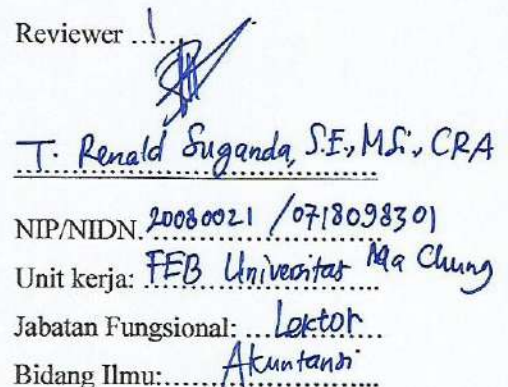 Reviewer 1
T. Renald Suganda, S.E., M.Si., CRA
NIP/NIDN. 20080021 / 0718098301
Unit kerja: FEB Universitas Ma Chung
Jabatan Fungsional: Lektor
Bidang Ilmu: Akuntansi